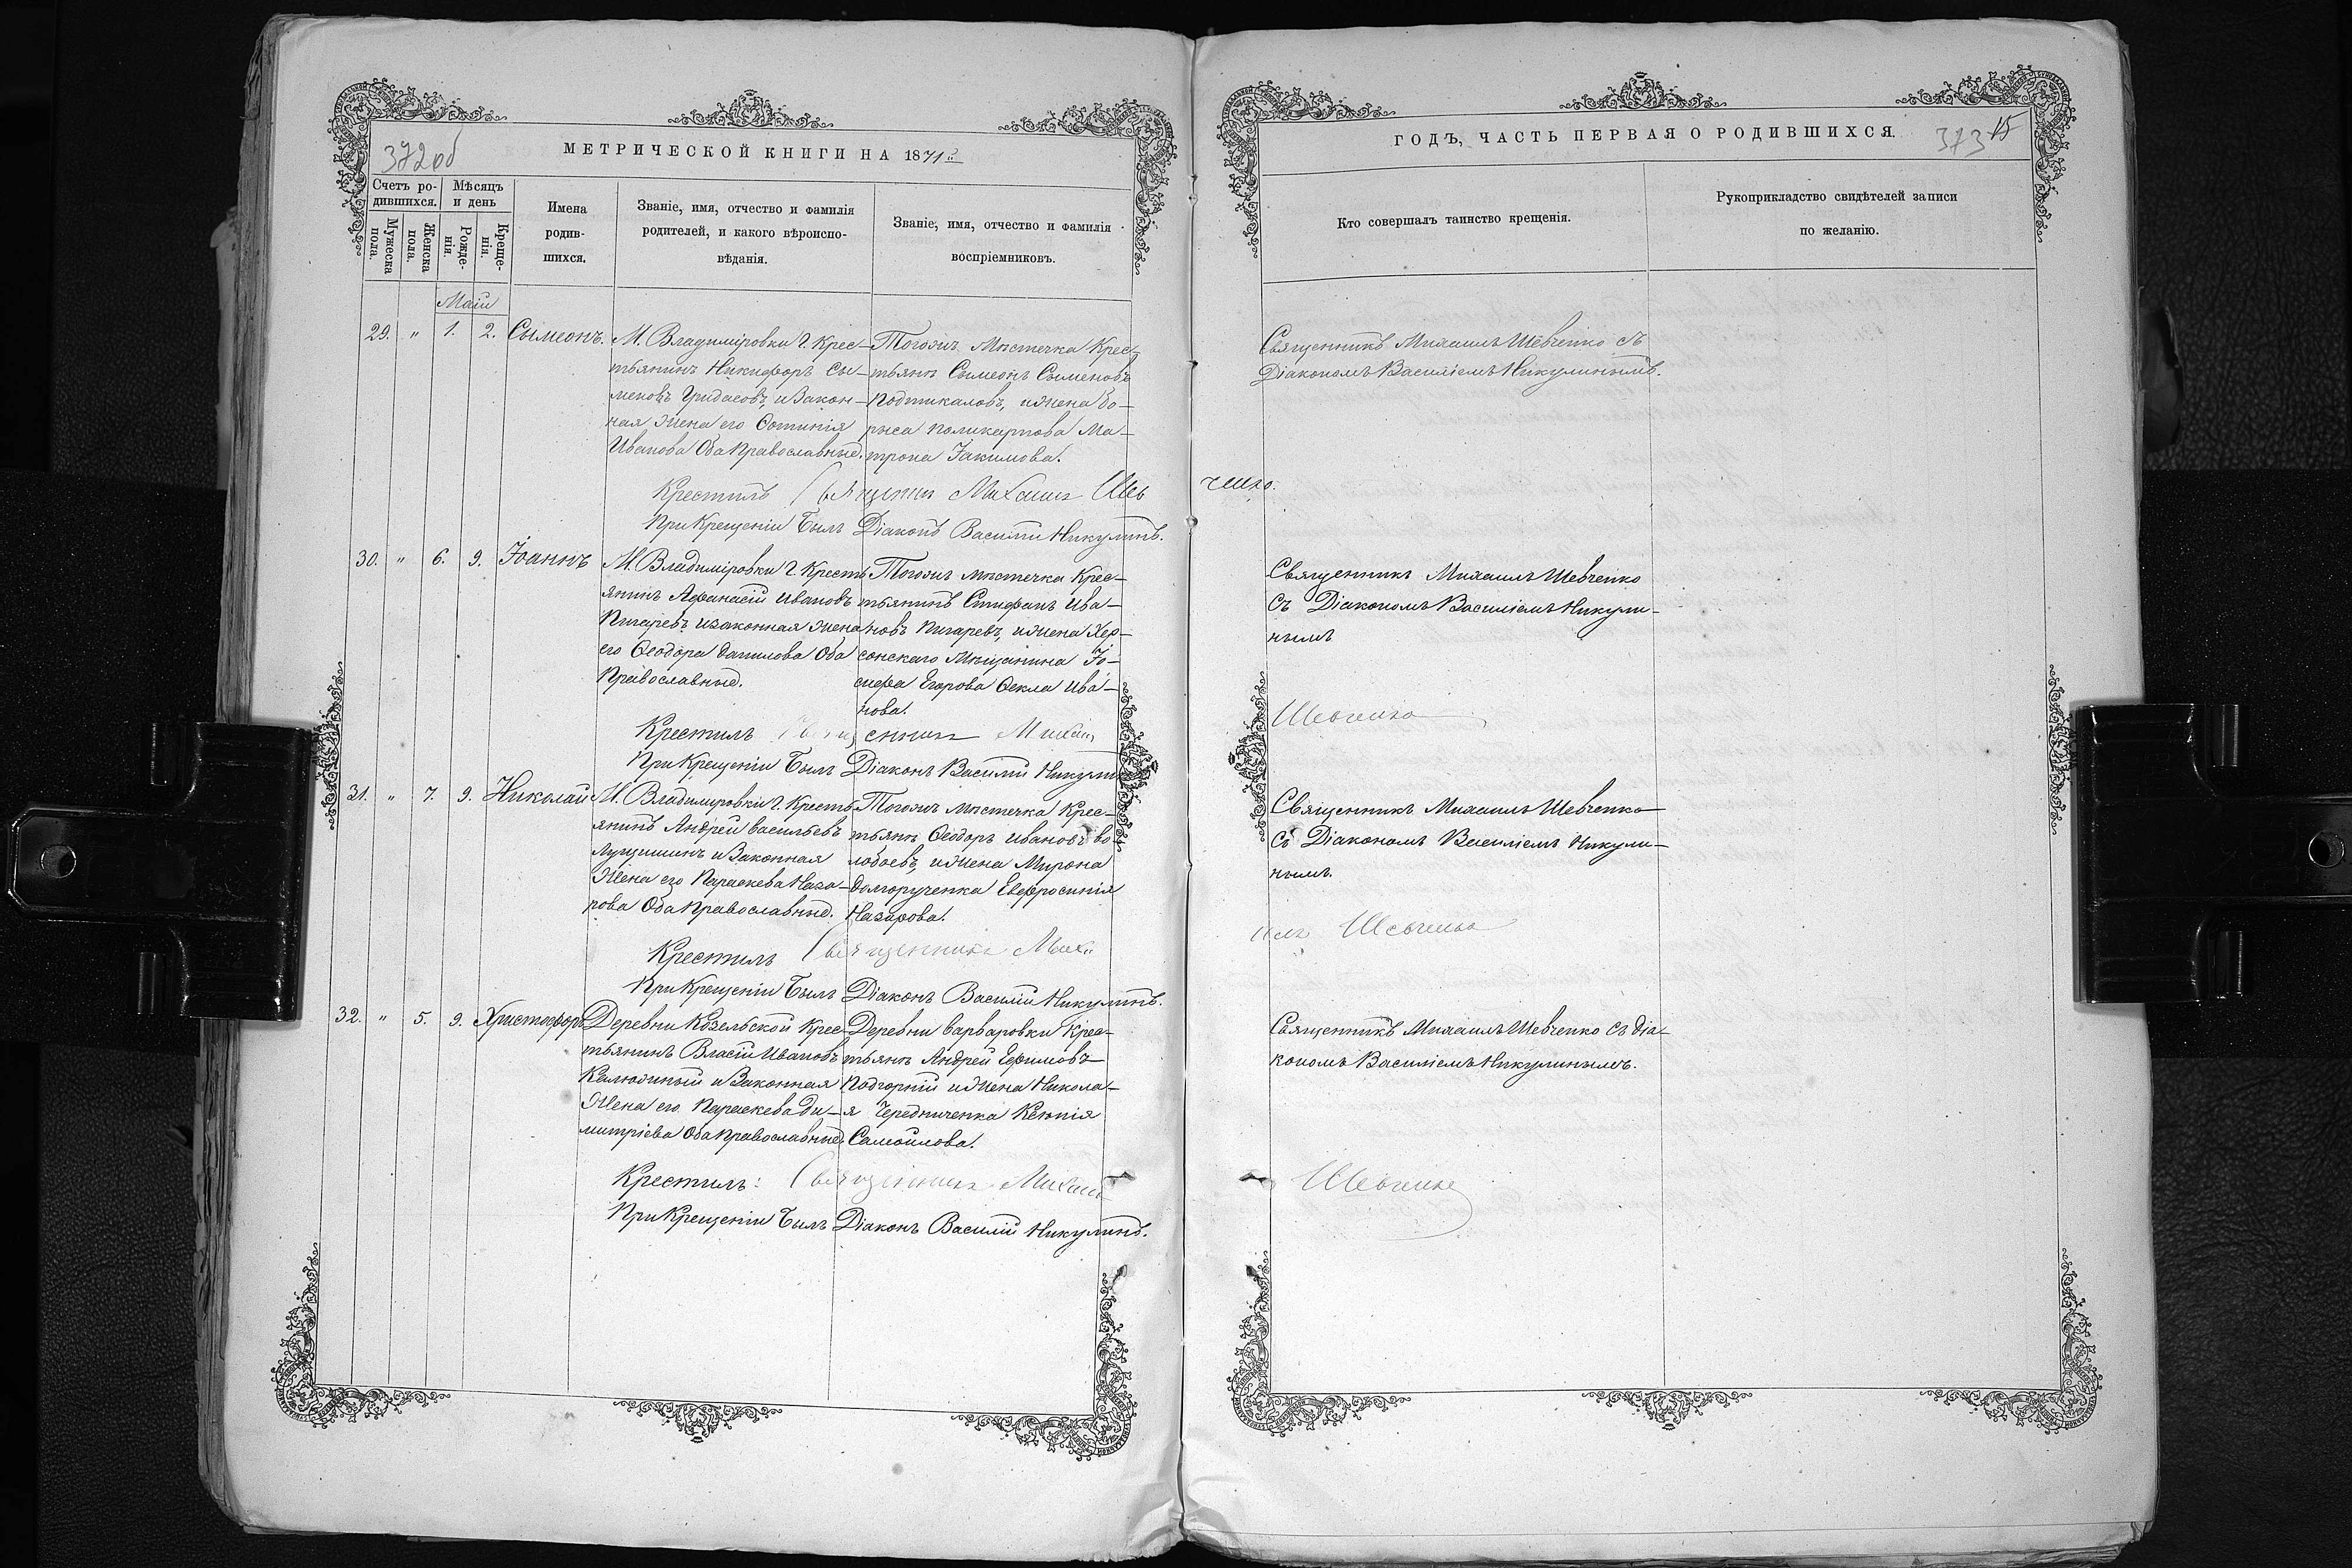 372об
МЕТРИЧЕСКОЙ КНИГИ НА 1871й
Счетъ ро-
дившихся.
Мѣсяцъ
и день
Мужеска
пола.
Женска
пола.
Рожде-
нія.
Креще-
нія.
Имена
родив-
шихся.
Званіе, имя, отчество и фамилія
родителей, и какого вѣроиспо-
вѣданія.
Званіе, имя, отчество и фамилія
воспріемниковъ.
Маій
29. " 1. 2. Сымеонъ.
М. Владиміровки Г. Крес-
тьянинъ Никифоръ Сы-
меновъ Гридасовъ, и Закон-
ная Жена его Фотинія
Иванова Оба Православные.
Тогожъ Мѣстечка Крес-
тьянъ Сымеонъ Сыменовъ
Подпикаловъ, и Жена Бо-
рыса Поликарпова Ма-
трона Іакимова.
Крестилъ Священникъ Михаилъ Шев
При Крещеніи Былъ Діаконъ Василій Никулинъ.
30. " 6. 9. Іоаннъ
М. Владиміровки Г. Кресть
янинъ Афанасій Ивановъ
Пигаревъ и законная Жена
его Ѳеодора Данилова Оба
Православные.
Тогожъ мѣстечка Крес-
тьянинъ Стифанъ Ива-
новъ Пигаревъ, и Жена Хер-
сонскаго Мѣщанина Іо-
сифа Егорова Ѳекла Ива-
нова.
Крестилъ Священникъ Михаил
При Крещеніи Былъ Діаконъ Василій Никулин
31. " 7. 9. Николай
М. Владиміровки Г. Кресть
янинъ Андрей Васильевъ
Лущишинъ и Законная
Жена его Параскева Наза-
рова Оба Православные.
Тогожъ мѣстечка Крес-
тьянъ Ѳеодоръ Ивановъ Во
лобоевъ, и Жена Мирона
Долгорученка Евфросинія
Назарова.
Крестилъ Священникъ Миха
При Крещеніи Былъ Діаконъ Василій Никулинъ.
32. " 5. 9. Христофоръ
Деревни Козельской Крес-
тьянинъ Власій Ивановъ
Калюжный и Законная
Жена его Параскева Ди-
митріева Оба Православные.
Деревни Варваровки Крес-
тьянъ Андрей Ефимовъ
Подгорній и Жена Никола-
я Чередниченка Ксенія
Самойлова.
Крестилъ: Священникъ Михаил
При Крещеніи Былъ Діаконъ Василій Никулинъ.
ГОДЪ, ЧАСТЬ ПЕРВАЯ О РОДИВШИХСЯ.
373 15
Кто совершалъ таинство крещенія.
Рукоприкладство свидѣтелей записи
по желанію.
Священникъ Михаилъ Шевченко съ
Діакономъ Василіемъ Никулинымъ.
ченко.
Священникъ Михаилъ Шевченко
Съ Діакономъ Василіемъ Никули-
нымъ
Шевченко
Священникъ Михаилъ Шевченко
Съ Діакономъ Василіемъ Никули-
нымъ.
илъ Шевченко
Священникъ Михаилъ Шевченко съ Діа-
кономъ Василіемъ Никулинымъ.
Шевченко